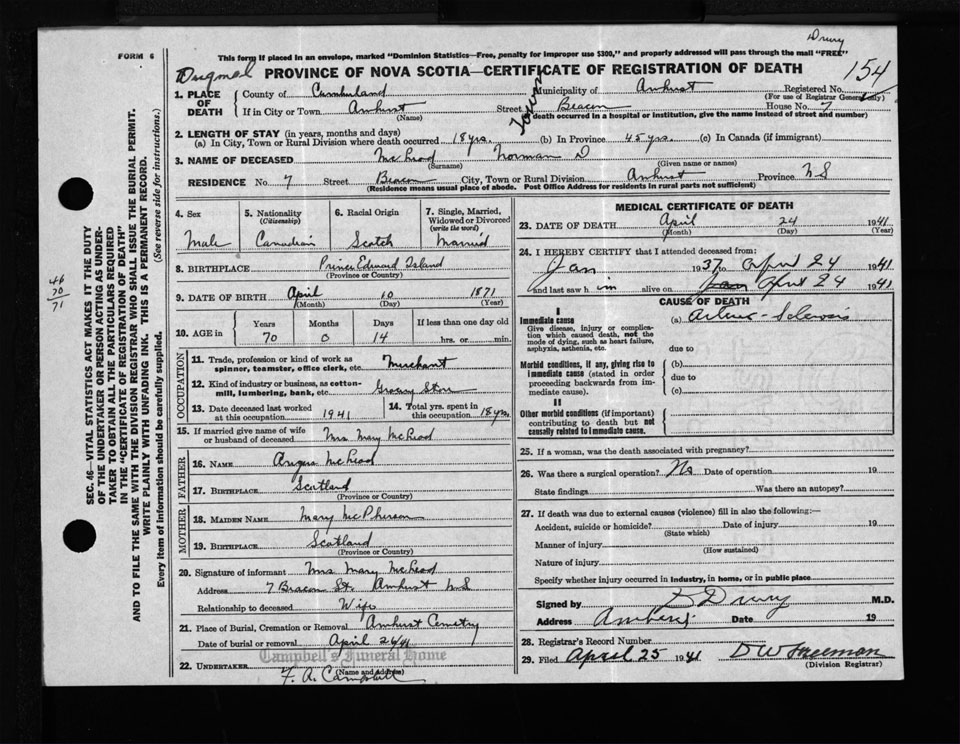 Drury
FORM 6
This form if placed in an envelope, marked "Dominion Statistics—Free, penalty for improper use $300," and properly addressed will pass through the mail "FREE"
PROVINCE OF NOVA SCOTIA—CERTIFICATE OF REGISTRATION OF DEATH
154
1. PLACE OF DEATH
County of Cumberland Municipality of Amherst Registered No.
(For use of Registrar General only)
If in City or Town Amherst Street Beacon House No. 7
(Name) (If death occurred in a hospital or institution, give the name instead of street and number)
Town
2. LENGTH OF STAY (in years, months and days)
(a) In City, Town or Rural Division where death occurred 18 yrs. (b) In Province 45 yrs. (c) In Canada (if immigrant)
3. NAME OF DECEASED McLeod Norman D
(Surname) (Given name or names)
RESIDENCE No. 7 Street Beacon City, Town or Rural Division Amherst Province N S
(Residence means usual place of abode. Post Office Address for residents in rural parts not sufficient)
4. Sex
Male
5. Nationality
(Citizenship)
Canadian
6. Racial Origin
Scotch
7. Single, Married, Widowed or Divorced
(write the word)
Married
8. BIRTHPLACE Prince Edward Island
(Province or Country)
9. DATE OF BIRTH April 10 1871
(Month) (Day) (Year)
10. AGE in
Years Months Days If less than one day old
70 0 14 hrs. or min.
46
70
71
OCCUPATION
11. Trade, profession or kind of work as spinner, teamster, office clerk, etc. Merchant
12. Kind of industry or business, as cotton-mill, lumbering, bank, etc. Grocery Store
13. Date deceased last worked at this occupation 1941
14. Total yrs. spent in this occupation 18 yrs.
15. If married give name of wife or husband of deceased Mrs Mary McLeod
FATHER
16. NAME Angus McLeod
17. BIRTHPLACE Scotland
(Province or Country)
MOTHER
18. MAIDEN NAME Mary McPherson
19. BIRTHPLACE Scotland
(Province or Country)
20. Signature of informant Mrs Mary McLeod
Address 7 Beacon St. Amherst N S
Relationship to deceased Wife
21. Place of Burial, Cremation or Removal Amherst Cemetry
Date of burial or removal April 26/41
Campbell's Funeral Home
22. UNDERTAKER F. A. Campbell
(Name and Address)
MEDICAL CERTIFICATE OF DEATH
23. DATE OF DEATH April 24 1941
(Month) (Day) (Year)
24. I HEREBY CERTIFY that I attended deceased from:
Jan 1937 to April 24 1941
and last saw him alive on April 24 1941
CAUSE OF DEATH
I
Immediate cause
Give disease, injury or complication which caused death, not the mode of dying, such as heart failure, asphyxia, asthenia, etc.
(a) Arterio-Sclerosis
due to
Morbid conditions, if any, giving rise to immediate cause (stated in order proceeding backwards from immediate cause).
(b)
due to
(c)
II
Other morbid conditions (if important) contributing to death but not causally related to immediate cause.
25. If a woman, was the death associated with pregnancy?
26. Was there a surgical operation? No Date of operation 19
State findings Was there an autopsy?
27. If death was due to external causes (violence) fill in also the following:—
Accident, suicide or homicide? Date of injury 19
(State which)
Manner of injury
(How sustained)
Nature of injury
Specify whether injury occurred in industry, in home, or in public place
Signed by D Drury M.D.
Address Amherst Date 19
28. Registrar's Record Number
29. Filed April 25 1941 D W Freeman
(Division Registrar)
SEC. 46—VITAL STATISTICS ACT MAKES IT THE DUTY
OF THE UNDERTAKER OR PERSON ACTING AS UNDER-
TAKER TO OBTAIN ALL THE PARTICULARS REQUIRED
IN THE "CERTIFICATE OF REGISTRATION OF DEATH"
AND TO FILE THE SAME WITH THE DIVISION REGISTRAR WHO SHALL ISSUE THE BURIAL PERMIT.
WRITE PLAINLY WITH UNFADING INK. THIS IS A PERMANENT RECORD.
Every item of information should be carefully supplied. (See reverse side for instructions.)